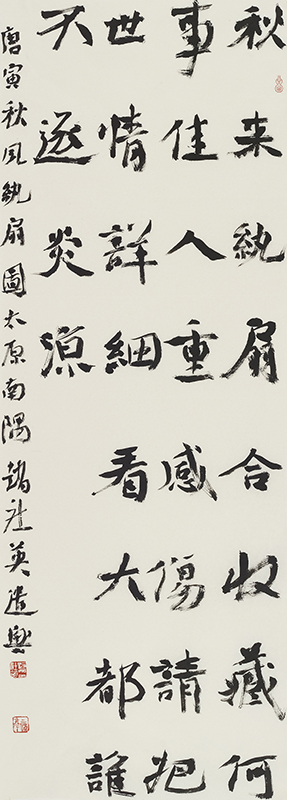 秋来紈扇合收藏何
事佳人重感傷請把
世情詳細看大都誰
不逐炎涼
唐寅秋风紈扇圖太原南隅英遣興